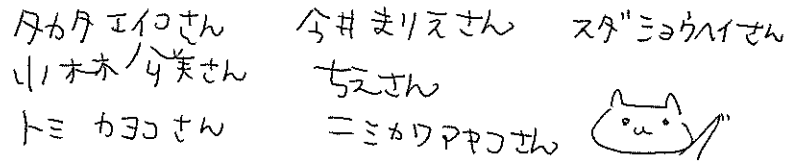 タカタ エイコさん 今井まりえさん スダショウヘイさん
小林 さん ちえさん
トミ カヨコさん ニミカワアキコさん